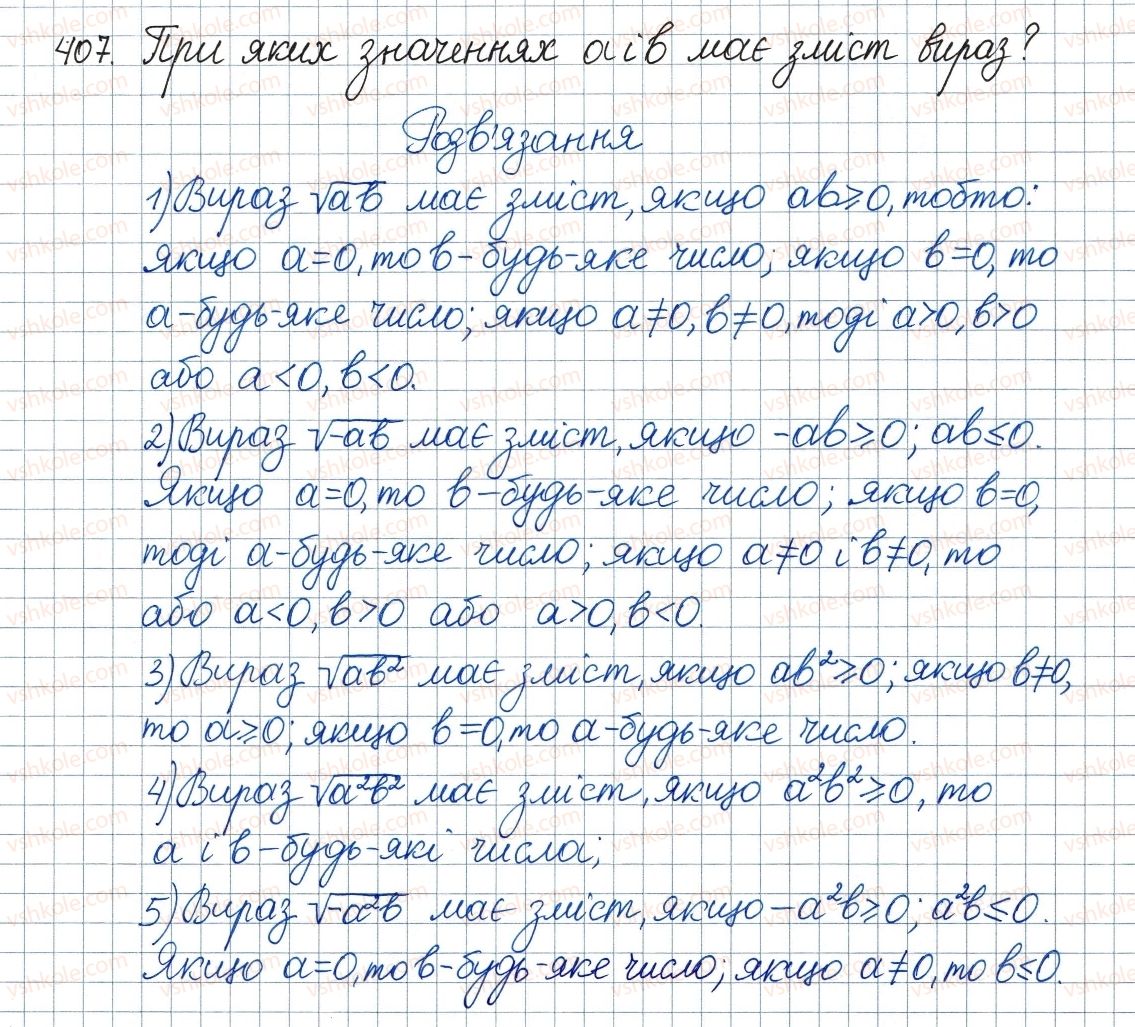 407. При яких значеннях a і b має зміст вираз?
Розв'язання
1) Вираз √ab має зміст, якщо ab≥0, тобто:
якщо a=0, то b - будь-яке число; якщо b=0, то
a - будь-яке число; якщо a≠0, b≠0, тоді a>0, b>0
або a<0, b<0.
2) Вираз √-ab має зміст, якщо -ab≥0; ab≤0.
Якщо a=0, то b - будь-яке число; якщо b=0,
тоді a - будь-яке число; якщо a≠0 і b≠0, то
або a<0, b>0 або a>0, b<0.
3) Вираз √ab² має зміст, якщо ab²≥0; якщо b≠0,
то a≥0; якщо b=0, то a - будь-яке число.
4) Вираз √a²b² має зміст, якщо a²b²≥0, то
a і b - будь-які числа;
5) Вираз √-a²b має зміст, якщо -a²b≥0; a²b≤0.
Якщо a=0, то b - будь-яке число; якщо a≠0, то b≤0.